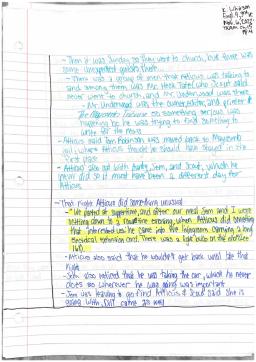 K. Whitson
- Then it was Sunday so they went to church, but there was
some unexpected guests there
- There was a group of men that Atticus was talking to
and among them, was Mr. Heck Tate, who Scout said
never went to church, and Mr. Underwood was there
- Mr. Underwood was the owner, editor, and printer of
The Maycomb Tribune so something serious was
happening he was trying to find something to
write for the news
- Atticus said Tom Robinson was moved back to Maycomb
jail, where Atticus thought he should have stayed in the
first place
- Atticus also sat with Aunty, Jem, and Scout, which he
never did so it must have been a different day for
Atticus
- That night Atticus did something unusual
- "We parted at suppertime, and after our meal Jem and I were
settling down to a routine evening, when Atticus did something
that interested us: he came into the livingroom carrying a long
electrical extension cord. There was a light bulb on the end (pg.
- Atticus also said that he wouldn't get back until late that
night
- Jem also noticed that he was taking the car, which he never
does so wherever he was going was important
- Jem was leaving to go find Atticus & Scout said she is
going with, Dill came as well